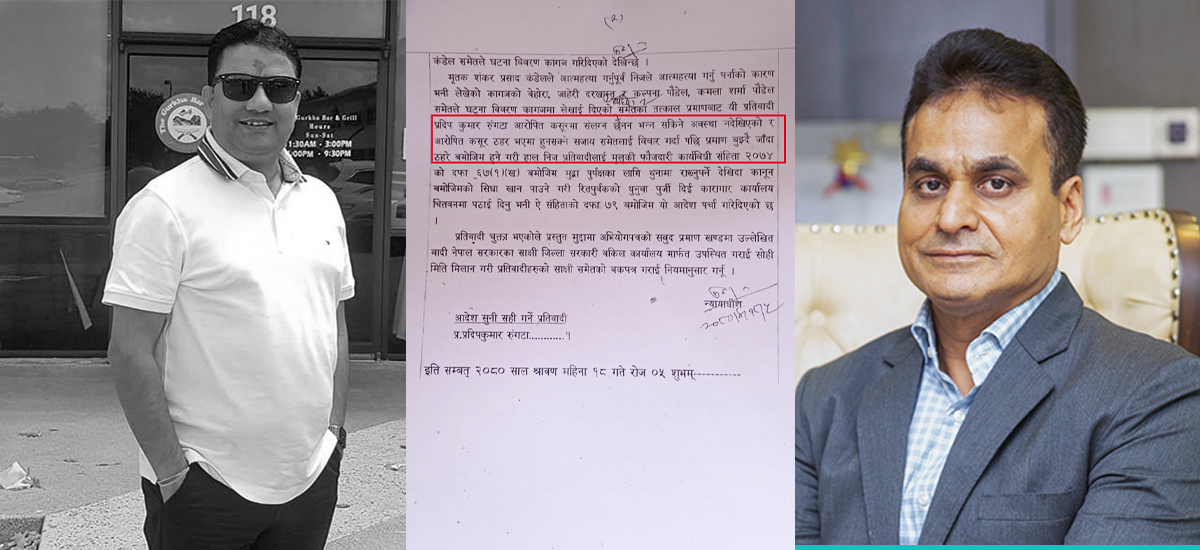 118
The Gurkha Bar
Gurkha Bar & Grill
Hours
Sun-Sat
11:30AM - 3:00PM
- 9:30PM
(२)
कंडेल समेतले घटना विवरण कागज गरिदिएको देखिन्छ ।
मृतक शंकर प्रसाद कंडेलले आत्महत्या गर्नुपूर्व निजले आत्महत्या गर्नु पर्नाको कारण
भनी लेखेको कागजको बेहोरा, जाहेरी दरखास्त र कल्पना पौडेल, कमला शर्मा पौडेल
समेतले घटना विवरण कागजमा लेखाई दिएको समेतका तत्काल प्रमाणबाट यी प्रतिवादी
प्रदिप कुमार रुंगटा आरोपित कसूरमा संलग्न छैनन भन्न सकिने अवस्था नदेखिएको र
आरोपित कसूर ठहर भएमा हुनसक्ने सजाय समेतलाई विचार गर्दा पछि प्रमाण बुझ्दै जाँदा
ठहरे बमोजिम हुने गरी हाल निज प्रतिवादीलाई मुलुकी फौजदारी कार्यबिधी संहिता २०७४
को दफा ६७(१)(ख) बमोजिम मुद्दा पुर्पक्षका लागि थुनामा राख्नुपर्ने देखिदा कानून
बमोजिमको सिधा खान पाउने गरी रितपुर्वकको थुनुवा पुर्जी दिई कारागार कार्यालय
चितवनमा पठाई दिनु भनी ऐ संहिताको दफा ७९ बमोजिम यो आदेश पर्चा गरिदिएको छ
।
प्रतिवादी चुक्ता भएकोले प्रस्तुत मुद्दामा अभियोगपत्रको सबुद प्रमाण खण्डमा उल्लेखित
वादी नेपाल सरकारका साक्षी जिल्ला सरकारी वकिल कार्यालय मार्फत उपस्थित गराई सोही
मिति मिलान गरी प्रतिवादीहरुको साक्षी समेतको बकपत्र गराई नियमानुसार गर्नू ।
न्यायाधीश
आदेश सुनी सही गर्ने प्रतिवादी
प्र.प्रदिपकुमार रुंगटा............१
इति सम्बत् २०८० साल श्रावण महिना १८ गते रोज ०५ शुभम्-----------